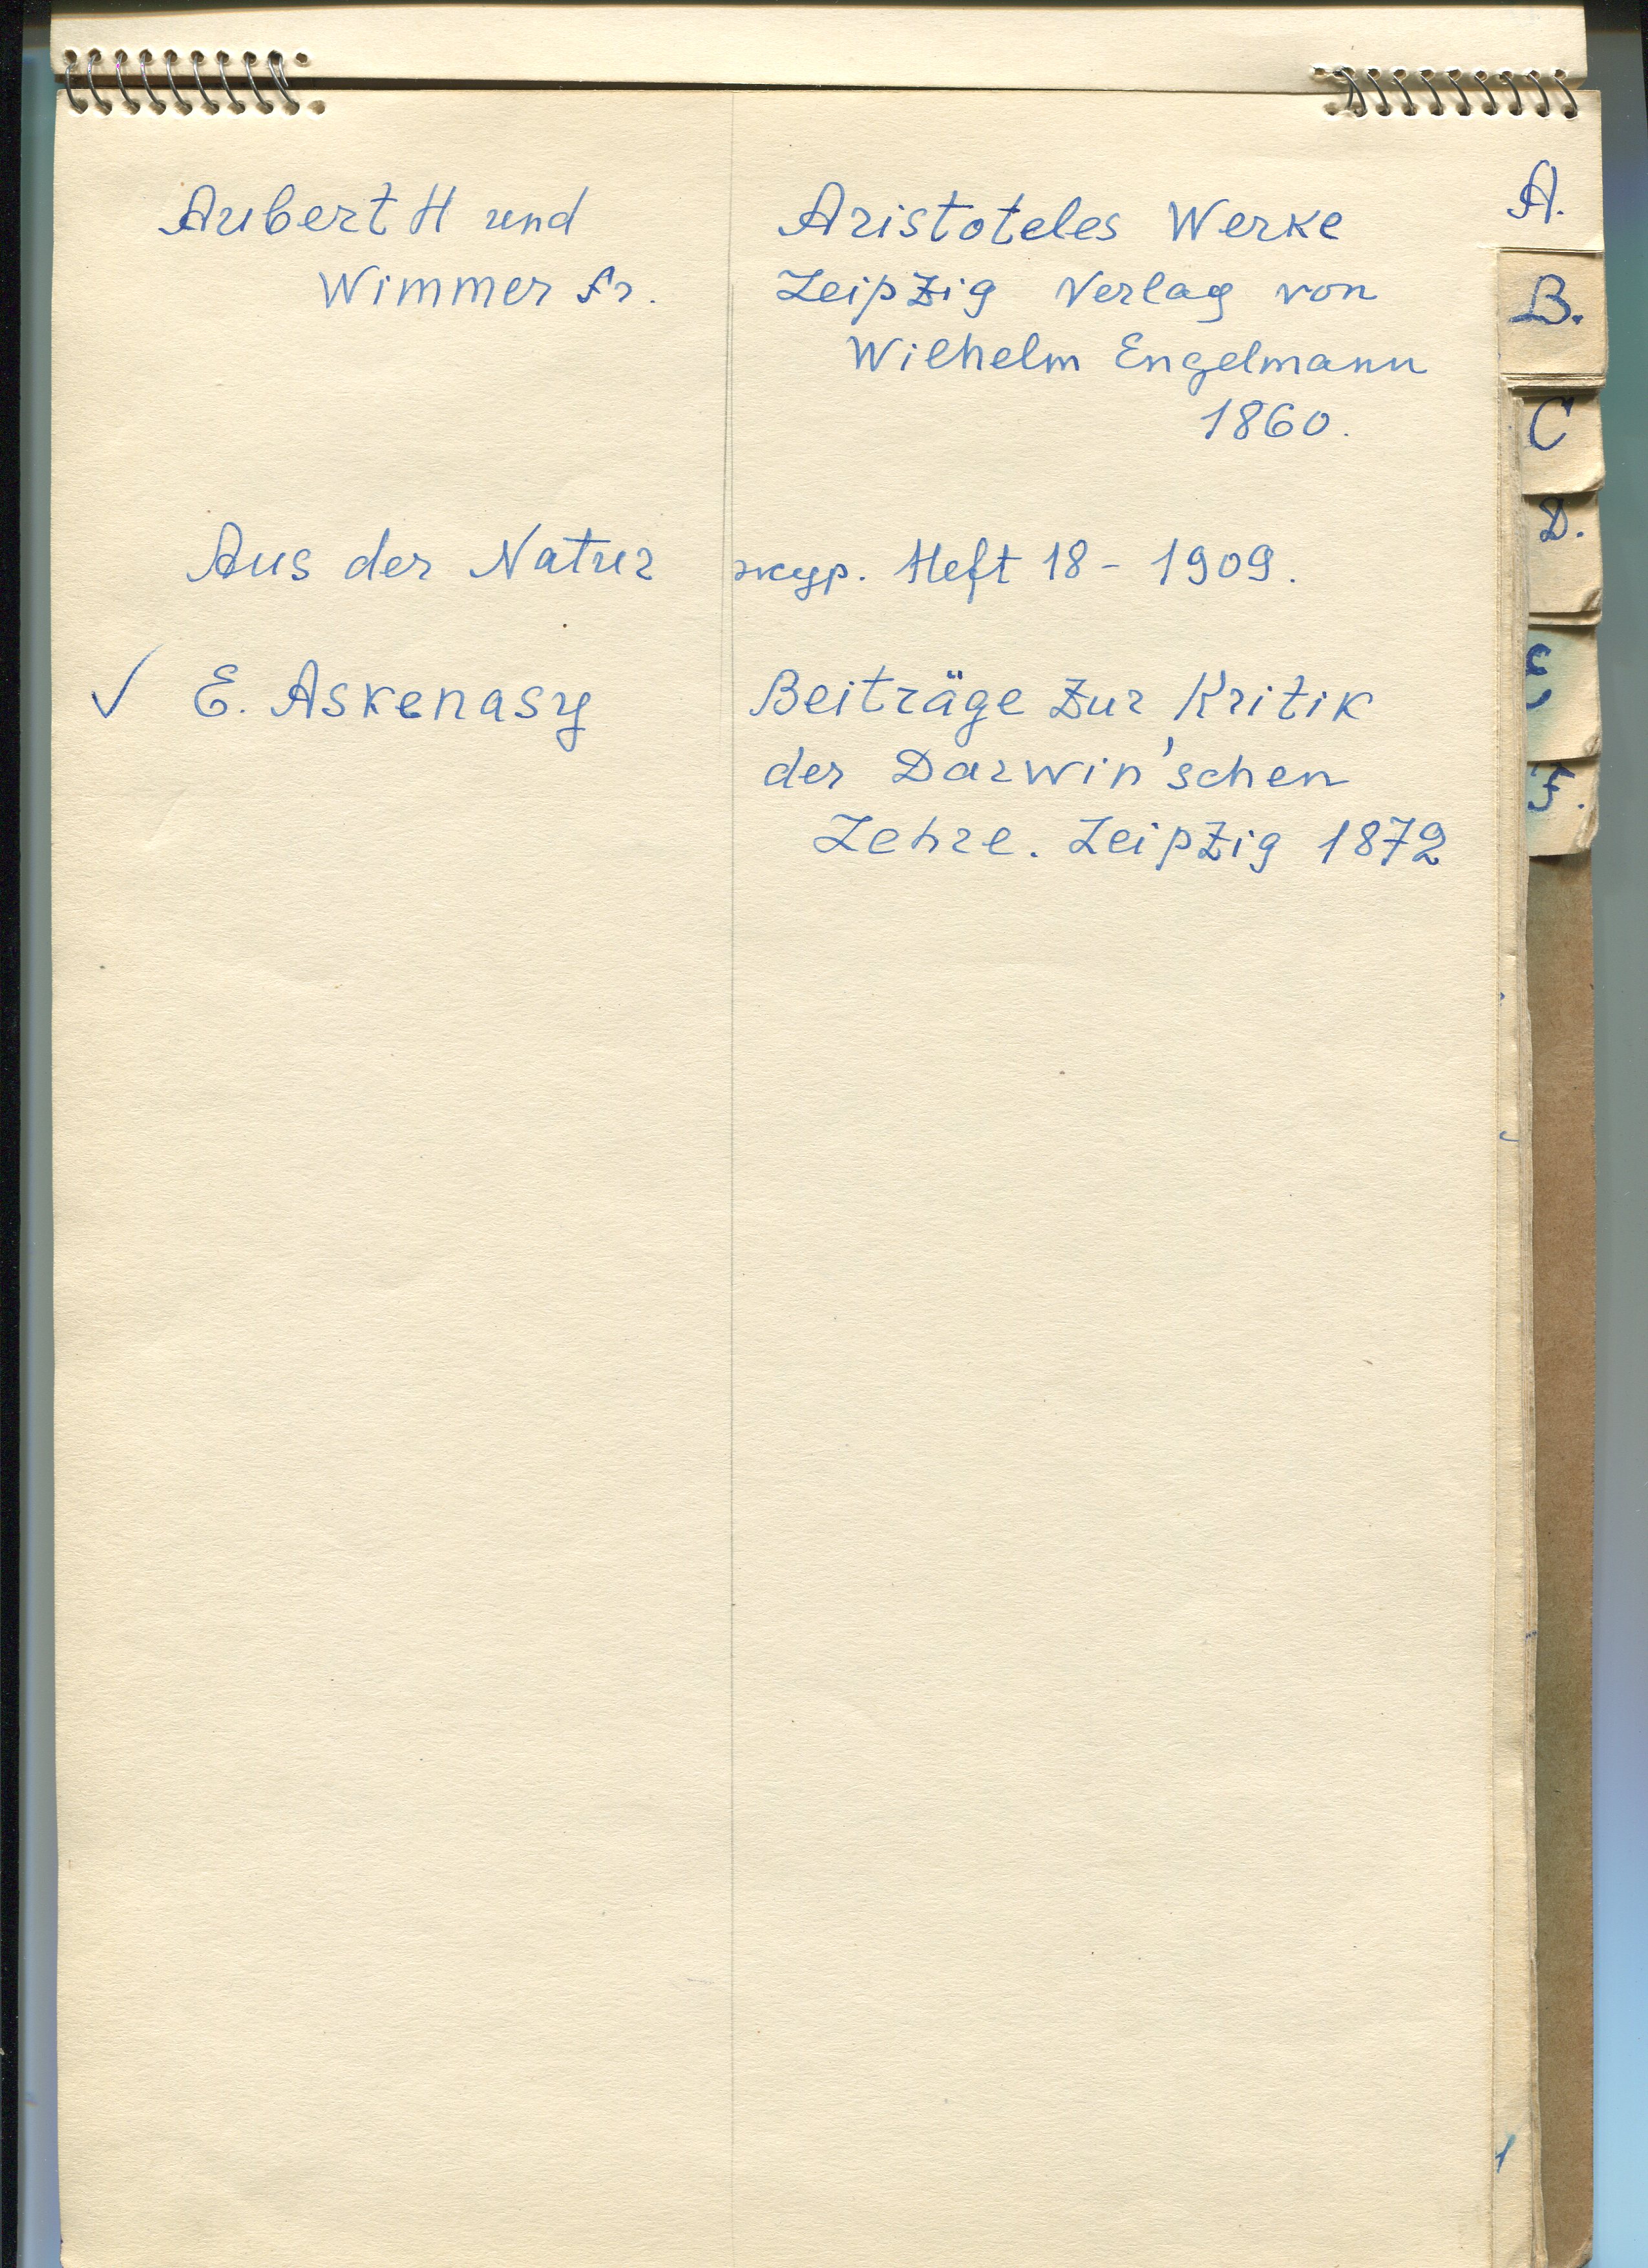 Aubert H und
Wimmer Fr.
Aristoteles Werke
Leipzig Verlag von
Wilhelm Engelmann
1860.
Aus der Natur жур. Heft 18 - 1909.
✓ E. Askenasy
Beiträge zur Kritik
der Darwin'schen
Lehre. Leipzig 1872
A.
B.
C
D.
E.
F.